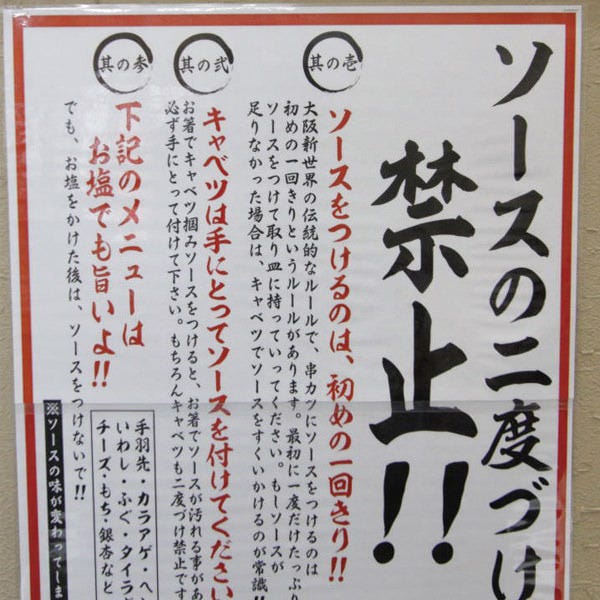 ソースの二度づけ
禁止!!
其の壱
ソースをつけるのは、初めの一回きり!!
大阪新世界の伝統的なルールで、串カツにソースをつけるのは
初めの一回きりというルールがあります。最初に一度だけたっぷり
ソースをつけて取り皿に持っていってください。もしソースが
足りなかった場合は、キャベツでソースをすくいかけるのが常識!!
其の弐
キャベツは手にとってソースを付けてください
お箸でキャベツ掴みソースをつけると、お箸でソースが汚れる事があ
必ず手にとって付けて下さい。もちろんキャベツも二度づけ禁止です
其の参
下記のメニューは
お塩でも旨いよ!!
でも、お塩をかけた後は、ソースをつけないで!!
※ソースの味が変わってしま
手羽先・カラアゲ・ヘ
いわし・ふぐ・タイラ
チーズ・もち・銀杏など